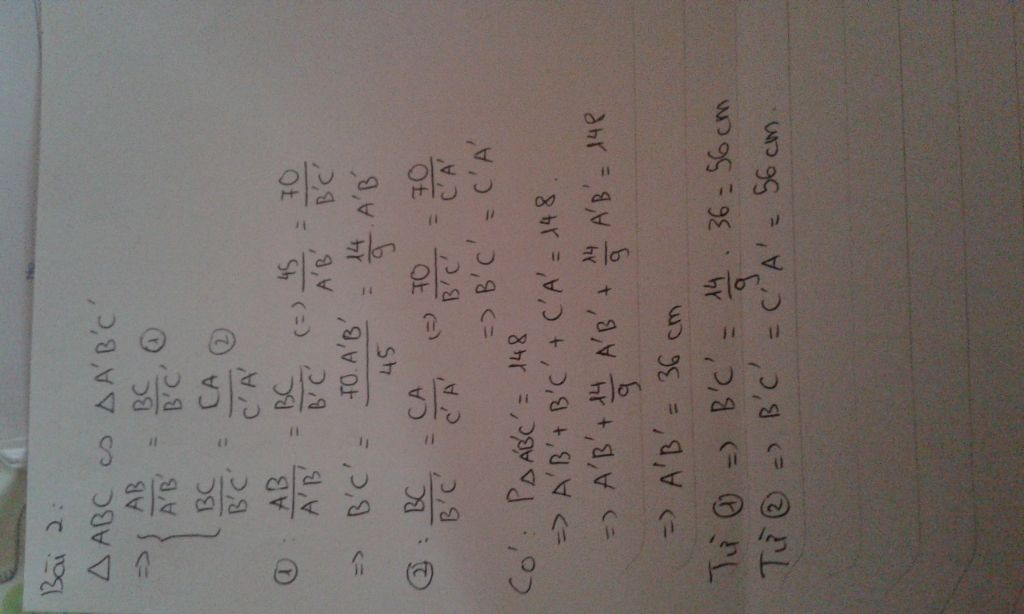 Bài 2:
Δ ABC ∽ Δ A'B'C'
=> { AB/A'B' = BC/B'C' ①
BC/B'C' = CA/C'A' ②
① : AB/A'B' = BC/B'C' (=) 45/A'B' = 70/B'C'
=> B'C' = 70.A'B'/45 = 14/9 . A'B'
② : BC/B'C' = CA/C'A' (=) 70/B'C' = 70/C'A'
=> B'C' = C'A'
Có : PΔA'B'C' = 148
=> A'B' + B'C' + C'A' = 148.
=> A'B' + 14/9 A'B' + 14/9 A'B' = 148
=> A'B' = 36 cm
Từ ① => B'C' = 14/9 . 36 = 56 cm
Từ ② => B'C' = C'A' = 56 cm.